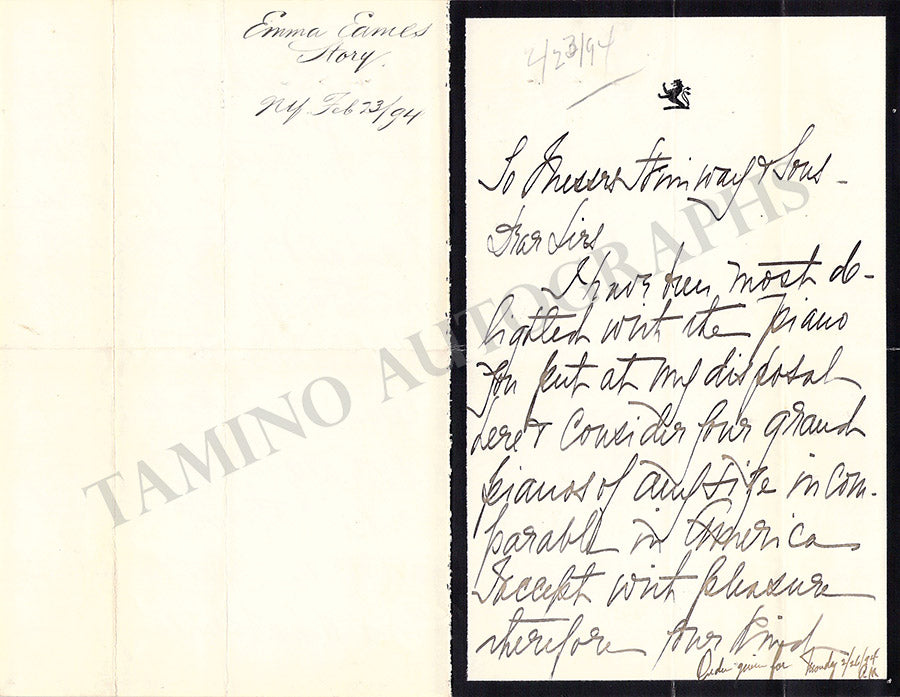 Emma Eames
Story.
NY Feb 23/94
2/23/94
To Messrs Steinway & Sons -
Dear Sirs
I have been most de-
lighted with the piano
you put at my disposal
here & consider your grand
pianos of any size incom-
parable in America
I accept with pleasure
therefore your kind
Order given for Monday 2/26/94
TAMINO AUTOGRAPHS